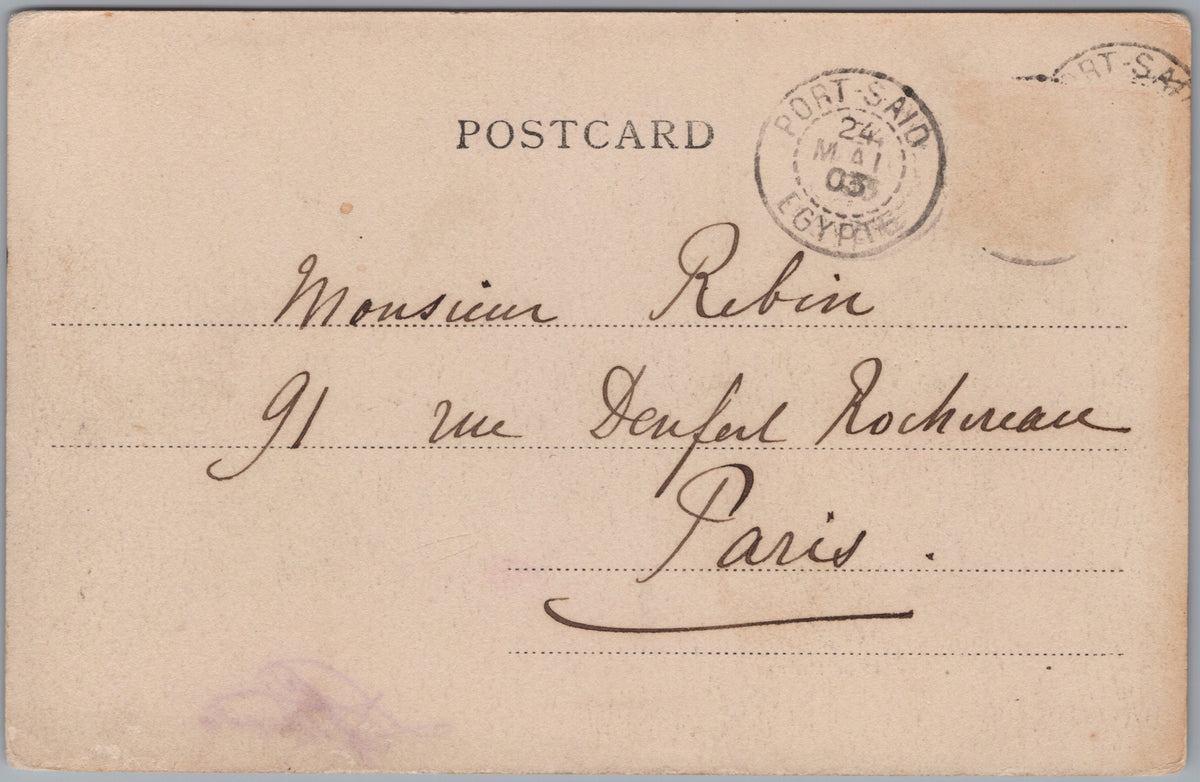 POSTCARD
PORT-SAID
24
MAI
03
EGYPTE
PORT-SAID
Monsieur Rebin
91 rue Denfert Rochereau
Paris.